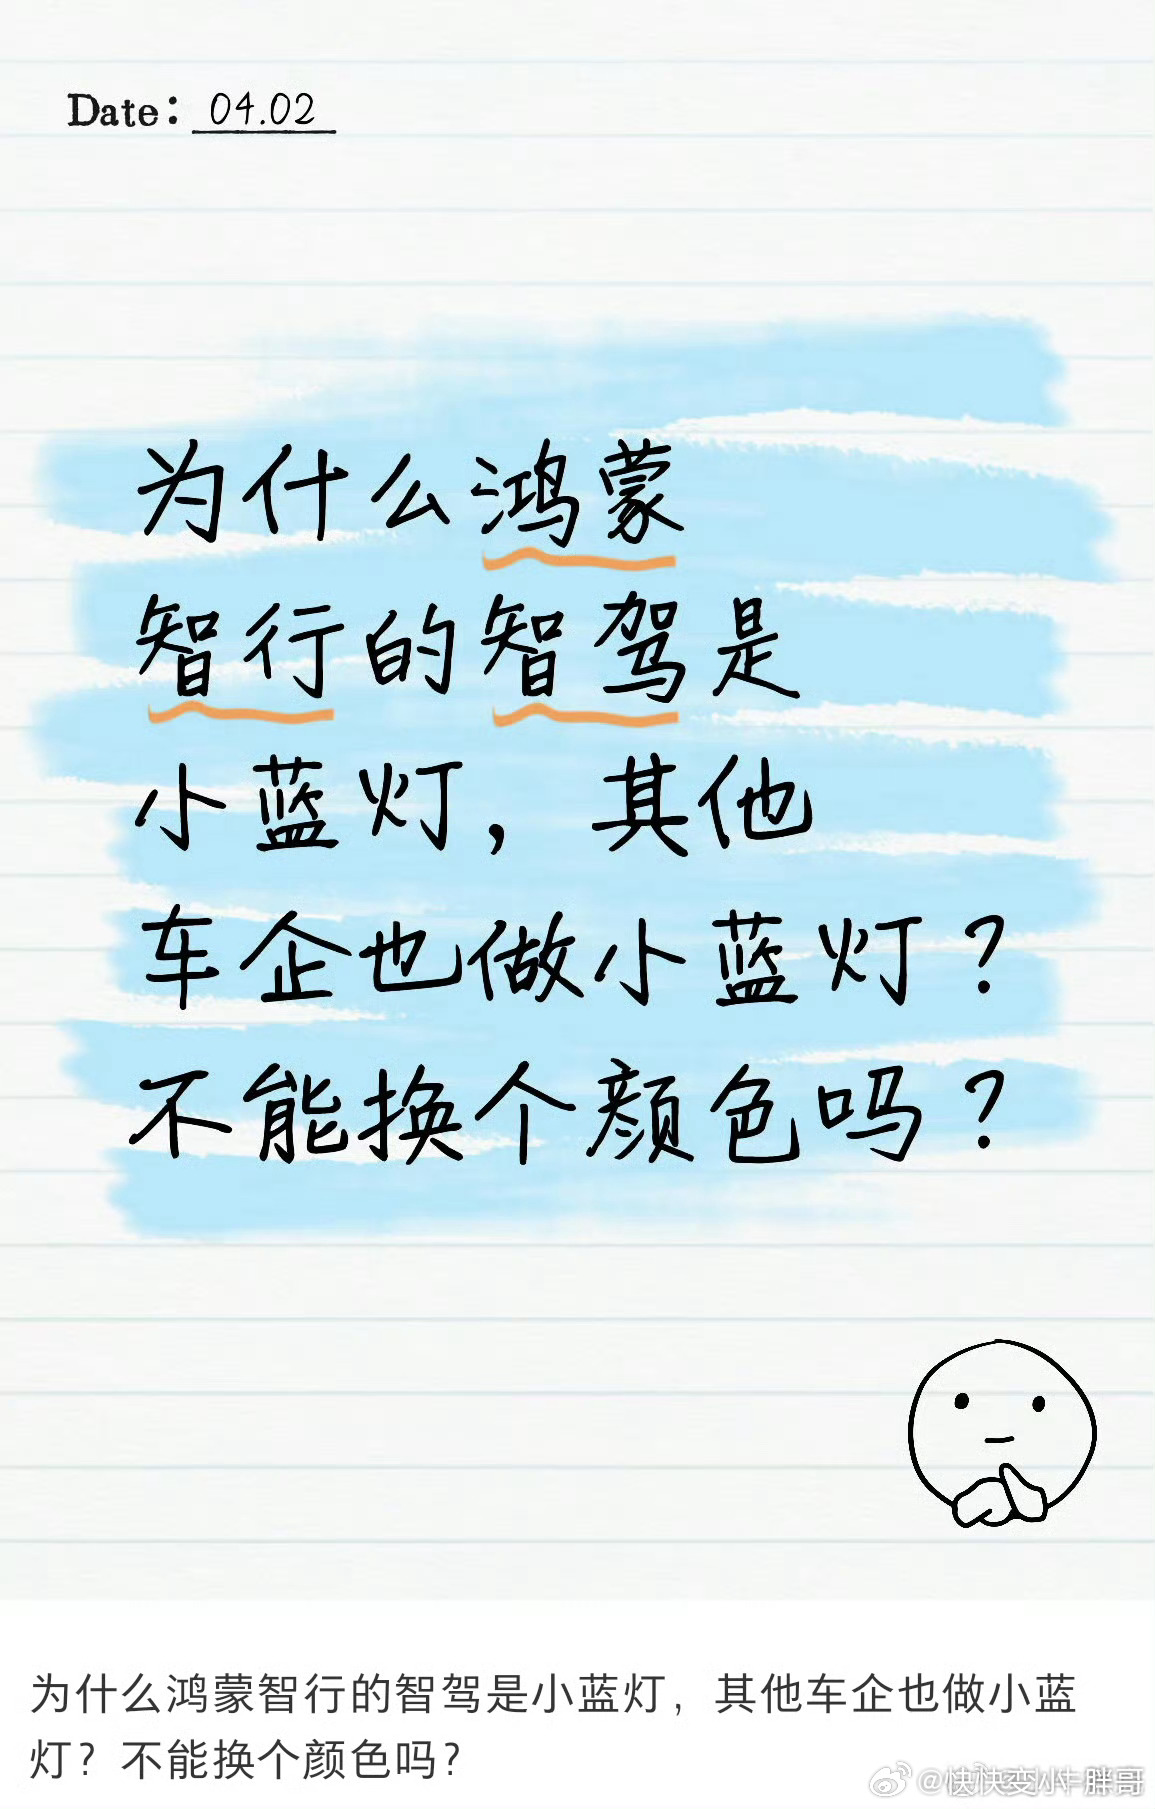 Date: 04.02
为什么鸿蒙
智行的智驾是
小蓝灯，其他
车企也做小蓝灯？
不能换个颜色吗？
为什么鸿蒙智行的智驾是小蓝灯，其他车企也做小蓝
灯？不能换个颜色吗？
@快快变小牛胖哥